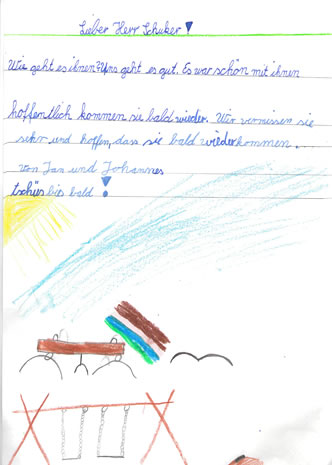 Lieber Herr Schuker!
Wie geht es ihnen? Uns geht es gut. Es war schön mit ihnen
hoffentlich kommen sie bald wieder. Wir vermissen sie
sehr und hoffen, dass sie bald wiederkommen.
von Jan und Johannes
tschüss bis bald!